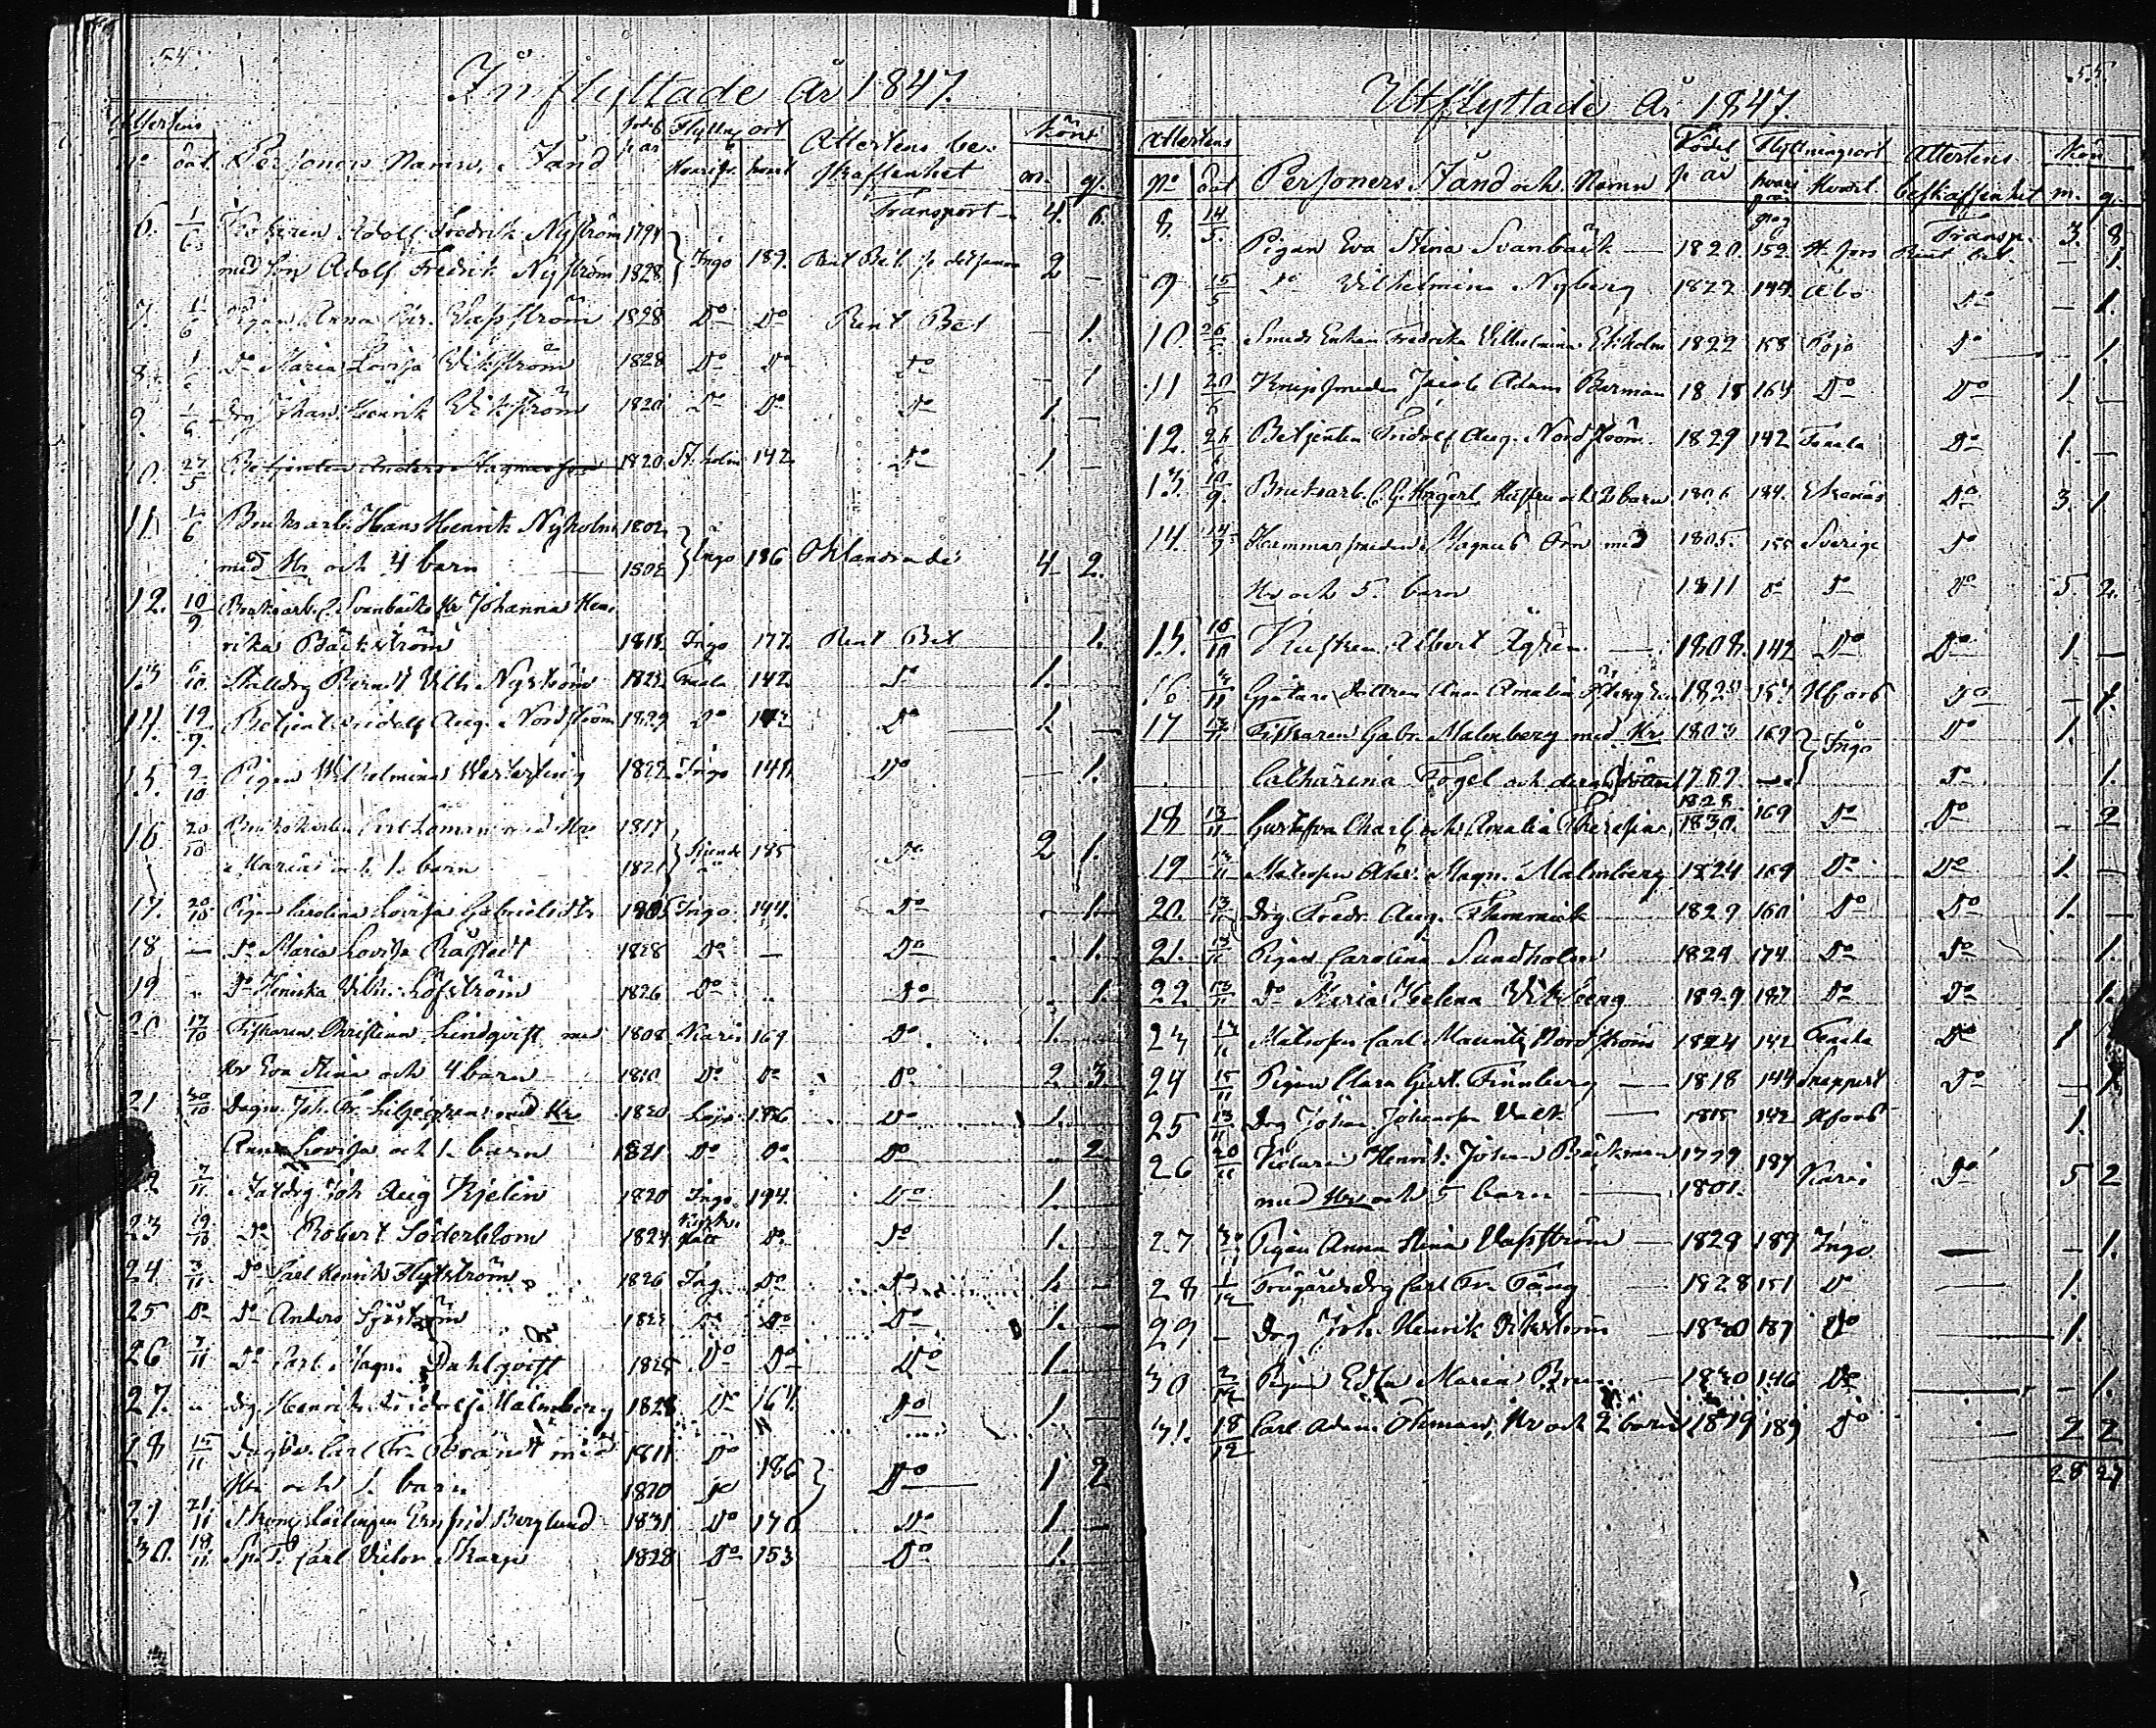 54.
Inflyttade År 1847.
Attertens
No dat. Personers Namn, Stånd
född år Flyttn. ort
hvarifr. hvart
Attertens be-
skaffenhet
Kön
m. q.
Transport 4. 6.
6. 1/6 Adolf Fredrik Nyström 1794
med son Adolf Fredrik Nyström 1828 } Ingo 189. 2 –
7. 1/6 Pigan Anna Chr. Vasström 1828 Do Do Bent Bet – 1.
8 1/6 Do Maria Lovisa Vikström 1828 Do Do Do – 1
9. 1/6 Drg Johan Henrik Vikström 1820 Do Do Do 1. –
10. 27/5 Betjenten Anders Magnusson 1820 St.holm 142 Do 1 –
11. 1/6 Bruksarb. Hans Henrik Nyholm 1802
med Hr och 4 barn 1802 } Ingo 186 4 2.
12. 10/9 Bruksarb. C. Svanbäcks Hr Johanna Hen-
rika Bäckström 1818. Ingo 177. Bent Bet 1.
13 6/10 Stalldrg Berndt Vilh. Nyström 142. Do 1.
14. 19/9. Betjent. Fridolf Aug. Nordström 1829 Do 142 Do 1. –
15. 9/10 Pigan Wilhelmina Westerling 1822 Ingo 144 Do – 1.
16 20/10 Carl Loman med Hr 1817
Maria och 1. barn 1821 } Sjunde å 185 Do 2 1.
17. 20/10 Pigan Carolina Lovisa Gabrielsdtr Ingo 144. Do – 1.
18 — Do Maria Lovisa Råstedt 1828 Do — Do 1.
19 " Do Henrika Vilh. Löfström 1826 Do " Do 1.
20 17/10 Fiskaren Christian Lindqvist med 1808 Karis 169 Do 1.
Hr Eva Stina och 4 barn 1810 Do Do Do 2 3
21 30/10 Dagsv. Joh. Fr. Liljegren med Hr 1820 Lojo 186 Do 1.
Anna Lovisa och 1. barn 1821 Do Do Do – 2
22 7/11 Stalldrg Joh. Aug. Kjelin 1820 Ingo 194. Do 1.
23 19/10 Do Robert Söderblom 1824 Kyrkslätt Do Do 1.
24. 7/11 Do Carl Henrik Flykström 1826 Ing. Do Do 1. –
25 Do Do Anders Sjöström Do Do Do 1. –
26 7/11 Do Carl Magn. Dahlqvist 1825 Do Do Do 1.
27. " Drg Henrik Fridolf Malmberg 1828 Do 164. Do 1. –
28 15/11 Dagsv. Carl Fr. Brandt med 1811 Do
Hr och 1. barn 1820 Do 186 } Do 1 2
29 21/11 Ernfrid Berglund 1831 Do 170 Do 1 –
30. 18/11. Carl Victor Skarp 1828 Do 153 Do 1.
55.
Utflyttade År 1847.
Attertens
No dat Personers Stånd och Namn
Född år Flyttningsort
hvari från Hvart.
Attertens
beskaffenhet
Kön
m. q.
Transp. 3. 8
8. 14/5. Pigan Eva Stina Svanbäck — 1820 152 H.fors Bent bet. – 1.
9 15/5 Do Vilhelmina Nyberg 1822 144 Åbo Do – 1.
10 26/5. Smeds Enkan Fredrika Vilhelmina Ekholm 1822 158 Pojo Do – 1.
11 20/6 Knipsmeden Jacob Adam Barman 1818 164 Do Do 1 –
12. Betjenten Fridolf Aug. Nordström 1829 142 Tenala Do 1. –
13. 10/9. Bruksarb. C. G. Hägert Hustru och 2 barn 1806 184. Ekenäs Do 3 1
14. 14/9 Hammarsmeden Magnus Örn med 1805. 155 Sverige Do
Hr och 5. barn 1811 Do Do Do 5. 2.
15. 10/10 Kusken Albert Ågren — 1808. 142 Do Do 1 –
16. Anna Amalia H.fors Do – 1.
17 13/11 Fiskaren Gabr. Malmberg med Hr 1803 169 } Ingo Do 1.
Catharina Fogel och deras döttrar 1787. Do 1.
18 13/11 Gustafva Charl. och Amalia Theresia 1828. 1830. 169 Do Do – 2
19 13/11 Matrosen Alex. Magn. Malmberg 1824 169 Do Do 1. –
20. 13/11 Drg Fredr. Aug. 1829 160 Do Do 1. –
21. 13/11 Pigan Carolina Sundholm 1824 174 Do Do 1.
22 13/11 Do Maria Helena Vikberg 1829 187 Do Do 1.
23 13/11 Matrosen Carl Mauritz Nordström 1824 142 Tenala Do 1
24 15/11 Pigan Clara Gust. Finnberg — 1818 144 Snappert. Do – 1
25 13/11 Drg Johan Johansson Valk — 1815 142 H.fors 1.
26 20/11 Henrik Johan Bäckman 1779 187
med Hr och 5 barn — 1801. Karis Do 5 2
27 Pigan Anna Stina Vasström — 1828 189 Ingo — – 1.
28 1/12 Trägårdsdrg Carl Fr. Fång 1828 151 Do — 1.
29 – Drg Joh. Henrik Vikström — 1820 187 Do — 1.
30 2/12 Pigan Edla Maria Brun 1830 146 Do — – 1.
31. 18/12 Carl Adam Öhman, Hr och 2 barn 1819 189 Do — 2 2
28 27